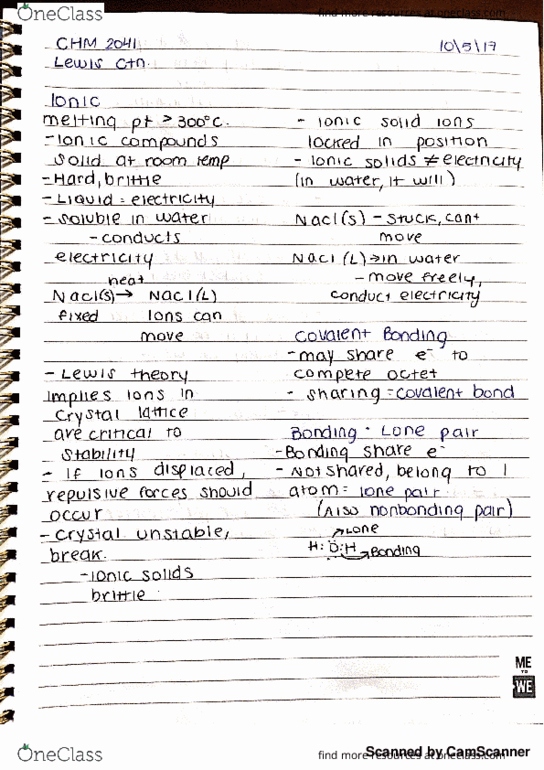 OneClass
find more resources at oneclass.com
CHM 2041
10\5\17
Lewis Ctn.
Ionic
melting pt ≥ 300°C.
-Ionic compounds
solid at room temp
-Hard, brittle
- Liquid = electricity
- soluble in water
- conducts
electricity
heat
NaCl(s) → NaCl(L)
fixed Ions can
move
- Lewis theory
implies ions in
crystal lattice
are critical to
stability
- If ions displaced,
repulsive forces should
occur
- crystal unstable,
break.
-ionic solids
brittle
- Ionic solid ions
locked in position
- Ionic solids ≠ electricity
(in water, it will)
NaCl(s) - stuck, cant
move
NaCl (L) → in water
- move freely,
conduct electricity
Covalent Bonding
-may share e⁻ to
complete octet
- sharing = covalent bond
Bonding · Lone pair
-Bonding share e⁻
- Not shared, belong to 1
atom = lone pair
(Also nonbonding pair)
→ Lone
H:Ö:H → Bonding
ME
TO
WE
OneClass
find more resources at oneclass.com
Scanned by CamScanner